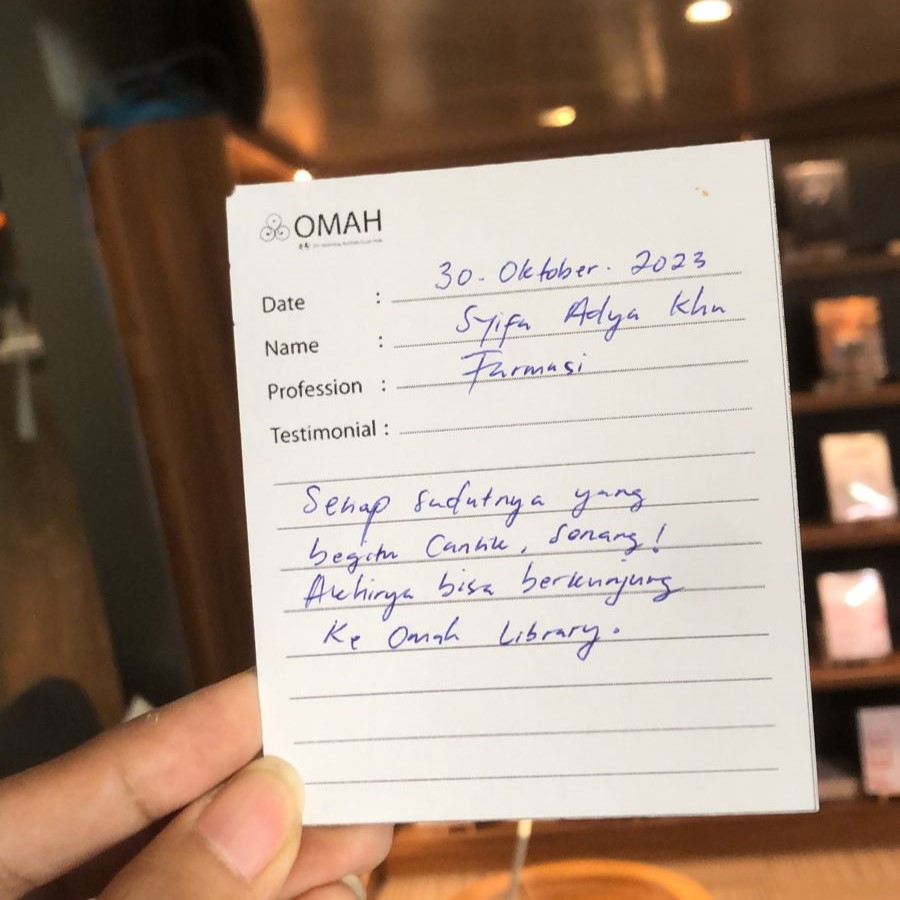 OMAH
Date : 30. Oktober. 2023
Name : Syifa Adya Khn
Profession : Farmasi
Testimonial :
Setiap sudutnya yang
begitu Cantik, Senang!
Akhirya bisa berkunjung
Ke Omah Library.